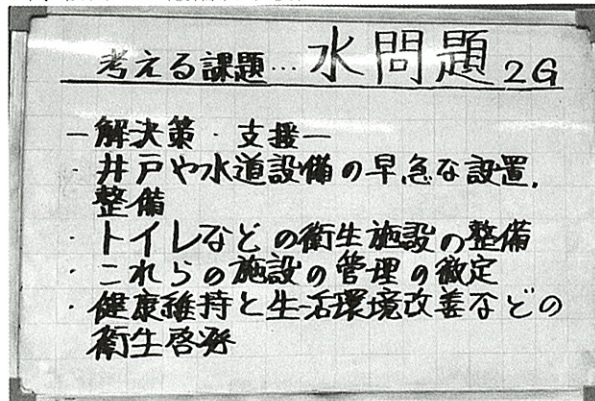 考える課題…水問題 2G
－解決策・支援－
・井戸や水道設備の早急な設置、
整備
・トイレなどの衛生施設の整備
・これらの施設の管理の徹定
・健康維持と生活環境改善などの
衛生啓発